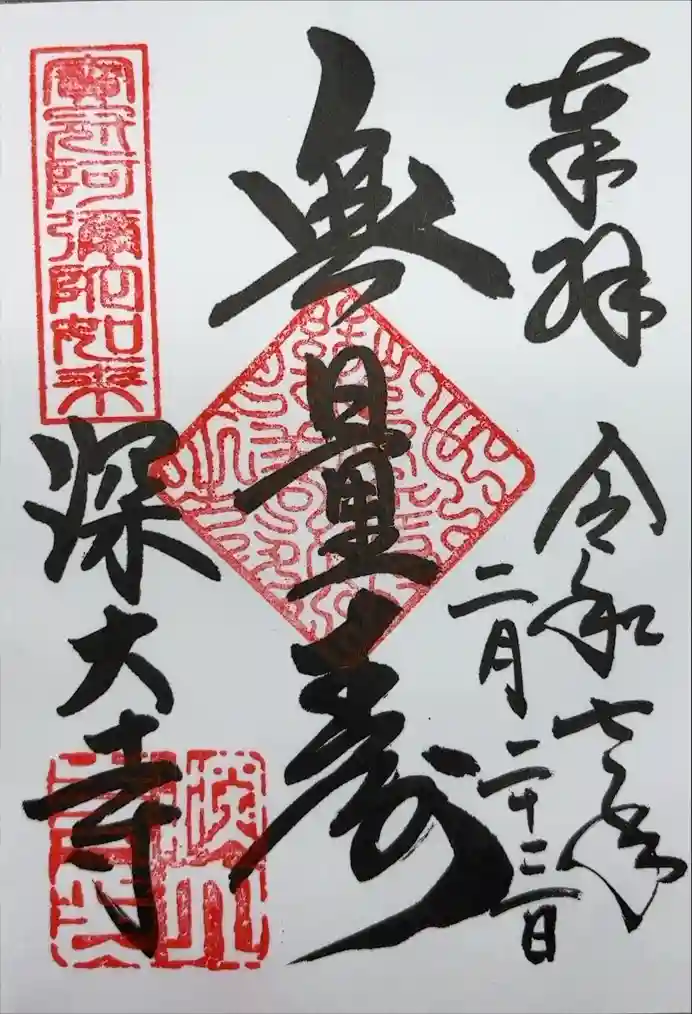 奉拝
令和七年
二月二十三日
無量寿
南無阿彌陀如来
深大寺